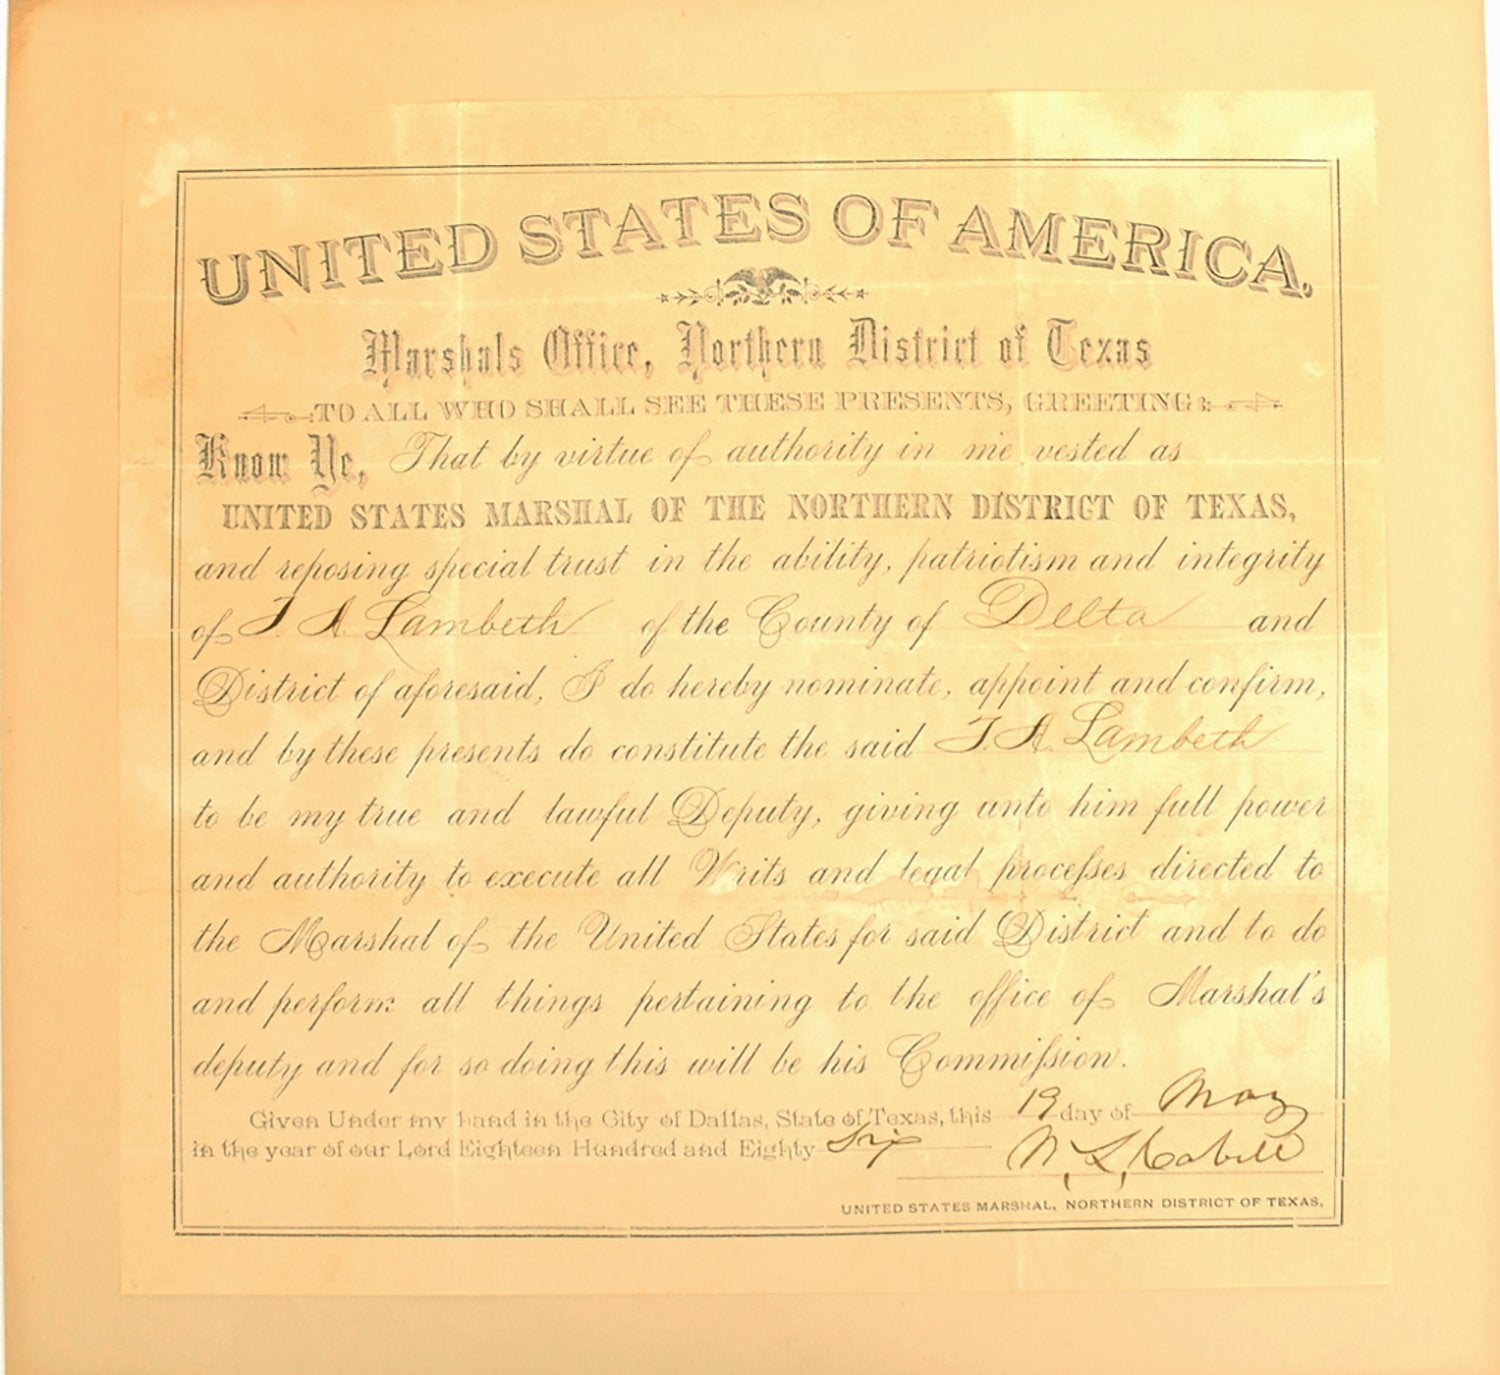 UNITED STATES OF AMERICA.
Marshals Office, Northern District of Texas
TO ALL WHO SHALL SEE THESE PRESENTS, GREETING:
Know Ye, That by virtue of authority in me vested as
UNITED STATES MARSHAL OF THE NORTHERN DISTRICT OF TEXAS,
and reposing special trust in the ability, patriotism and integrity
of J. A. Lambeth of the County of Delta and
District of aforesaid, I do hereby nominate, appoint and confirm,
and by these presents do constitute the said J. A. Lambeth
to be my true and lawful Deputy, giving unto him full power
and authority to execute all Writs and legal proceſses directed to
the Marshal of the United States for said District and to do
and perform all things pertaining to the office of Marshal's
deputy and for so doing this will be his Commiſsion.
Given Under my hand in the City of Dallas, State of Texas, this 19 day of May
in the year of our Lord Eighteen Hundred and Eighty Six W. L. Cabell
UNITED STATES MARSHAL, NORTHERN DISTRICT OF TEXAS.